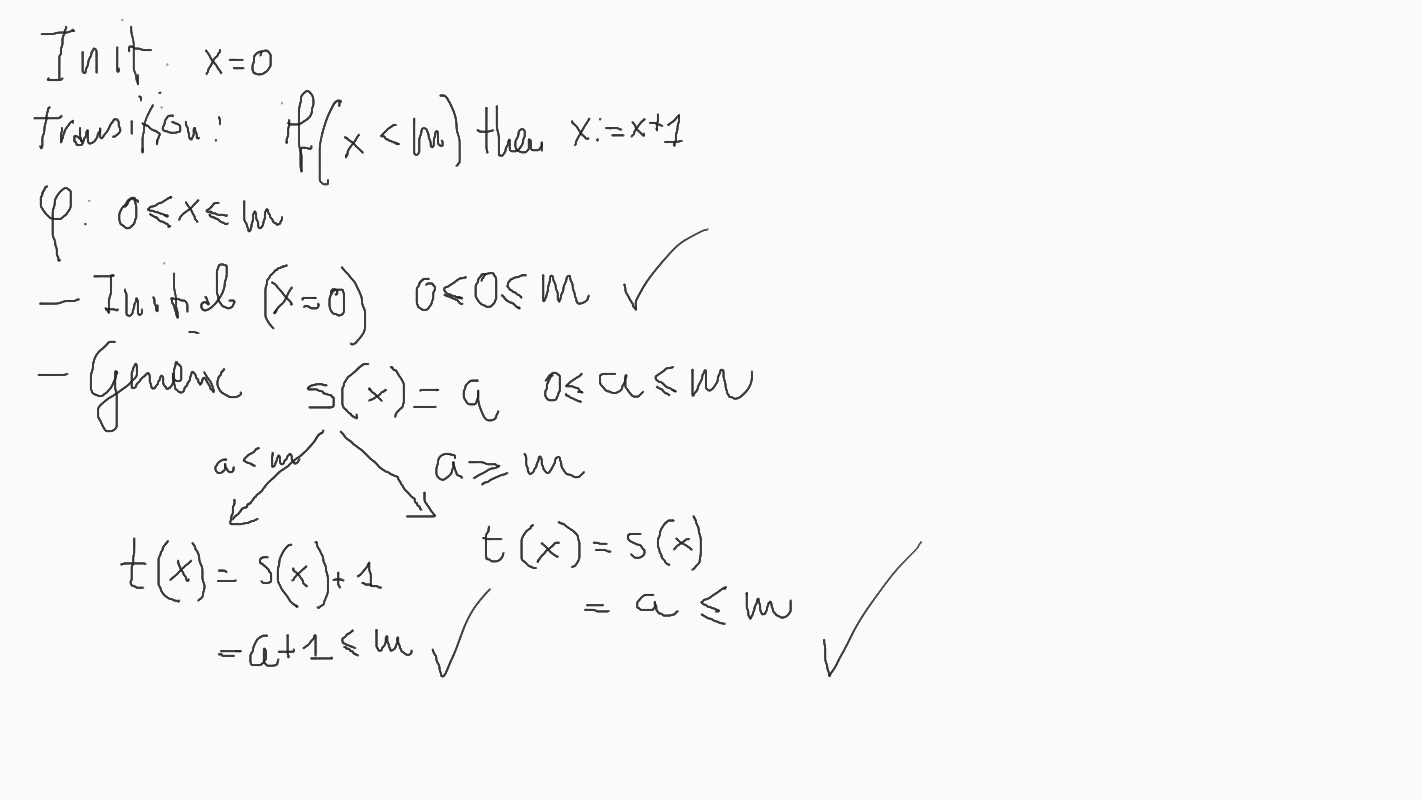 Init: x=0
transition: if(x < m) then x:=x+1
φ: 0⩽x⩽m
- Initial (x=0) 0⩽0⩽m ✓
- Generic s(x) = a 0⩽a⩽m
a<m a⩾m
t(x) = s(x)+1 t(x) = s(x)
=a+1⩽m ✓ = a⩽m ✓